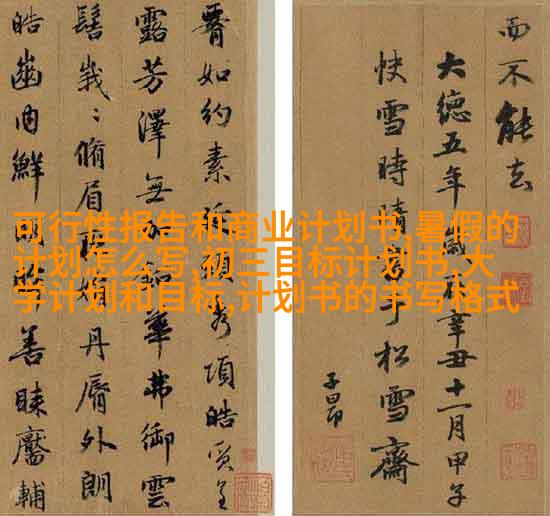 可行性报告和商业计划书,暑假的
计划怎么写,初三目标计划书,大
学计划和目标,计划书的书写格式
如約素延項皓質呈
露芳澤無鉛華弗御雲
髻峩〻脩眉娟丹脣外朗
皓齒内鮮明善睞靨輔
而不能去
大德五年歲在辛丑十一月甲子
快雪時晴書于松雪齋
子昂